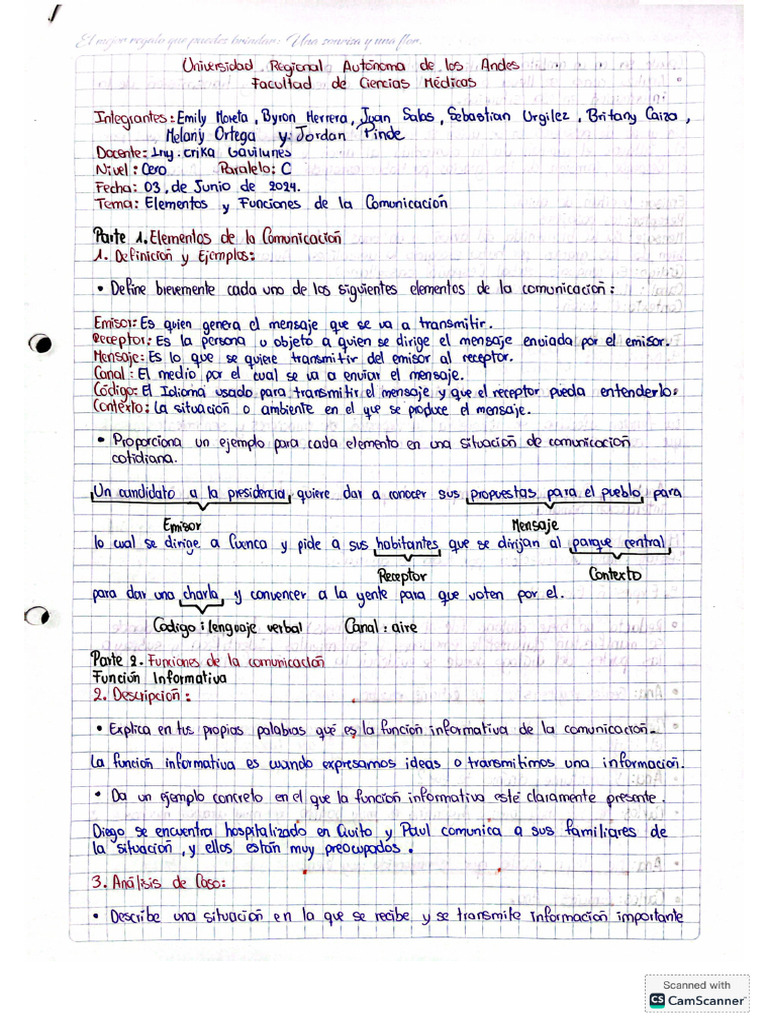 El mejor regalo que puedes brindar: Una sonrisa y una flor.
Universidad Regional Autónoma de los Andes
Facultad de Ciencias Médicas
Integrantes: Emily Moreta, Byron Herrera, Juan Salas, Sebastian Urgilez, Britany Caiza,
Melany Ortega y Jordan Pinde
Docente: Ing. Erika Gavilanes
Nivel: Cero Paralelo: C
Fecha: 03, de Junio de 2024.
Tema: Elementos y Funciones de la Comunicación
Parte 1. Elementos de la Comunicación
1. Definición y Ejemplos:
• Define brevemente cada uno de los siguientes elementos de la comunicación:
Emisor: Es quien genera el mensaje que se va a transmitir.
Receptor: Es la persona u objeto a quien se dirige el mensaje enviada por el emisor.
Mensaje: Es lo que se quiere transmitir del emisor al receptor.
Canal: El medio por el cual se va a enviar el mensaje.
Código: El Idioma usado para transmitir el mensaje y que el receptor pueda entenderlo.
Contexto: La situación o ambiente en el que se produce el mensaje.
• Proporciona un ejemplo para cada elemento en una situación de comunicación
cotidiana.
Un candidato a la presidencia, quiere dar a conocer sus propuestas para el pueblo, para
Emisor Mensaje
lo cual se dirige a Cuenca y pide a sus habitantes que se dirijan al parque central
Receptor Contexto
para dar una charla y convencer a la gente para que voten por el.
Codigo: lenguaje verbal Canal: aire
Parte 2. Funciones de la comunicación
Función Informativa
2. Descripción:
• Explica en tus propias palabras qué es la función informativa de la comunicación.
La función informativa es cuando expresamos ideas o transmitimos una información.
• Da un ejemplo concreto en el que la función informativa esté claramente presente.
Diego se encuentra hospitalizado en Quito y Paul comunica a sus familiares de
la situación, y ellos están muy preocupados.
3. Análisis de Caso:
• Describe una situación en la que se recibe y se transmite información importante
Scanned with
CS CamScanner